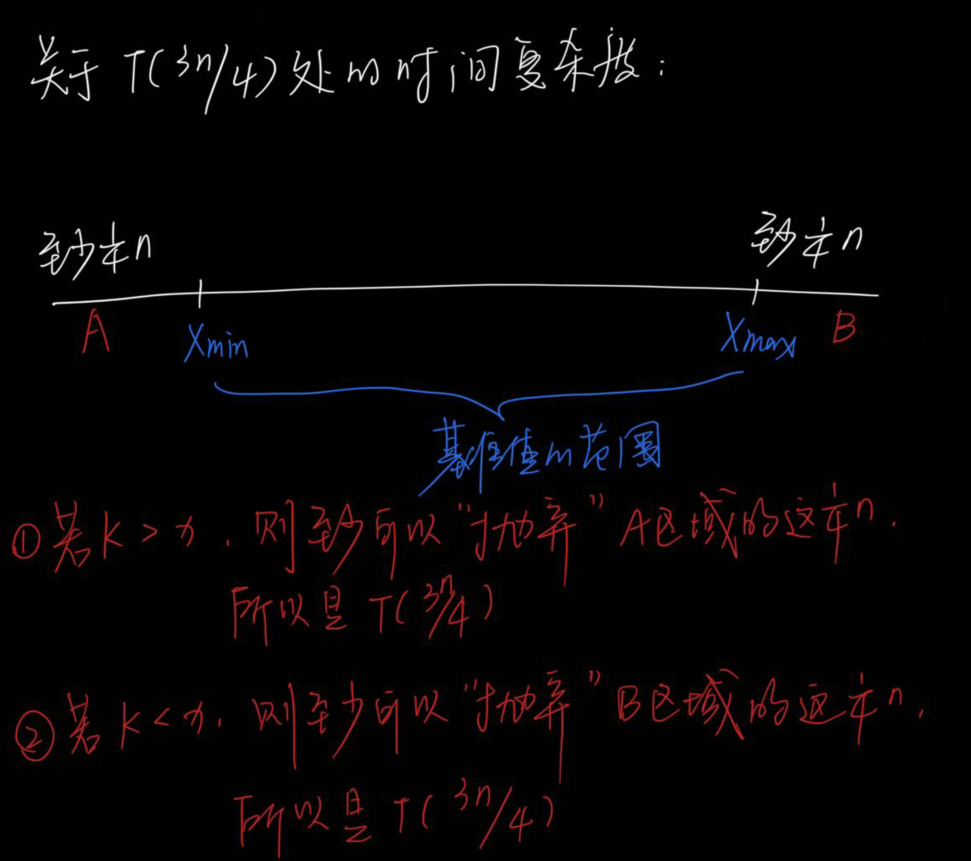 关于 T(3n/4) 处的时间复杂度：
至少¼n
至少¼n
A
Xmin
Xmax
B
基准值的范围
①若K>x，则至少可以“抛弃”A区域的这¼n.
所以是 T(3n/4)
②若K<x，则至少可以“抛弃”B区域的这¼n.
所以是 T(3n/4)